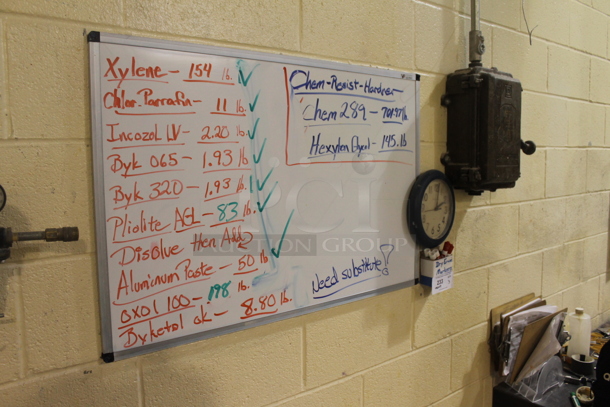 Xylene - 154 lb.
Chlor. Parrafin - 11 lb.
Incozol LV - 2.20 lb.
Byk 065 - 1.93 lb.
Byk 320 - 1.93 lb.
Pliolite AGL - 83 lb.
Disolve Hen Add
Aluminum Paste - 50 lb
OXOl 100 - 198 lb.
Byketol ok - 8.80 lb.
Chem-Resist-Hardner
Chem 289 - lb.
Hexylen Glycol - 145. lb
Need substitute!
PCI
AUCTION GROUP
Dry Erase
Markers